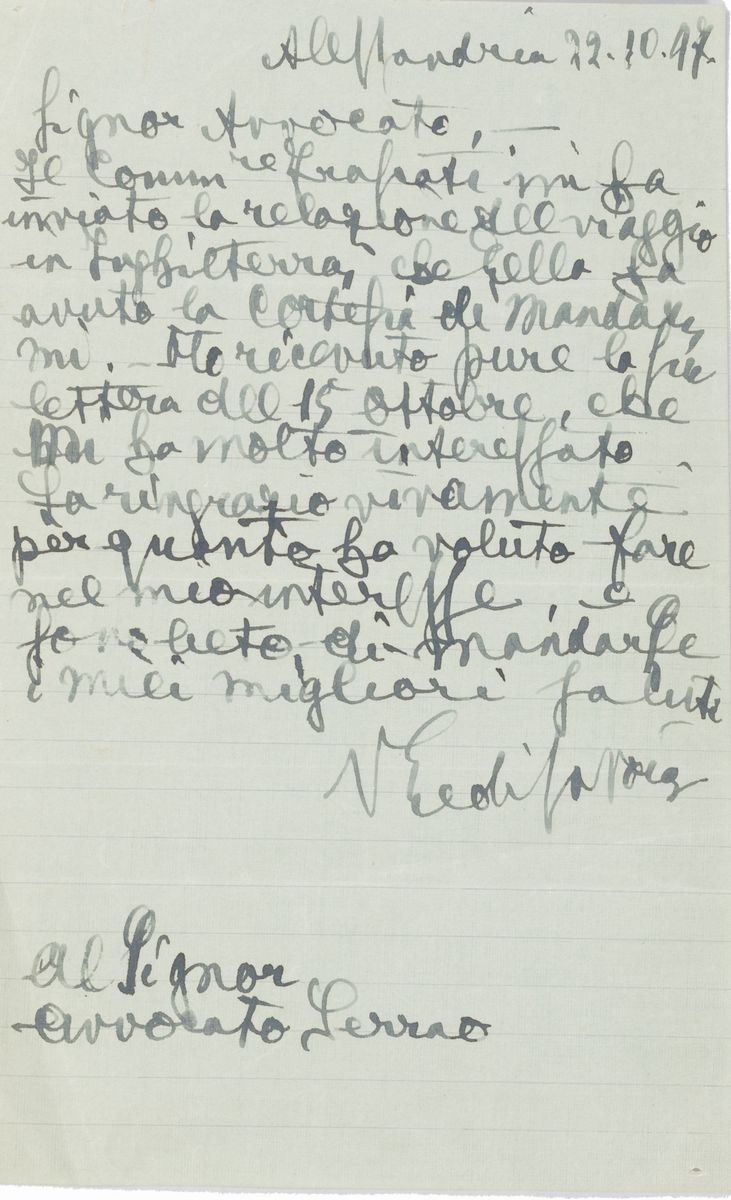 Alessandria 22.10.47.
Signor Avvocato, —
Il Comm re mi ha
inviato la relazione del viaggio
in Inghilterra, che Ella ha
avuto la cortesia di mandar,
mi. — Ho ricevuto pure la sua
lettera dell 15 ottobre, che
mi ha molto interessato.
La ringrazio vivamente
per quanto ha voluto fare
nel mio interesse, e
sono lieto di mandarle
i miei migliori saluti
V E di Savoia
Al Signor
Avvocato Serrao